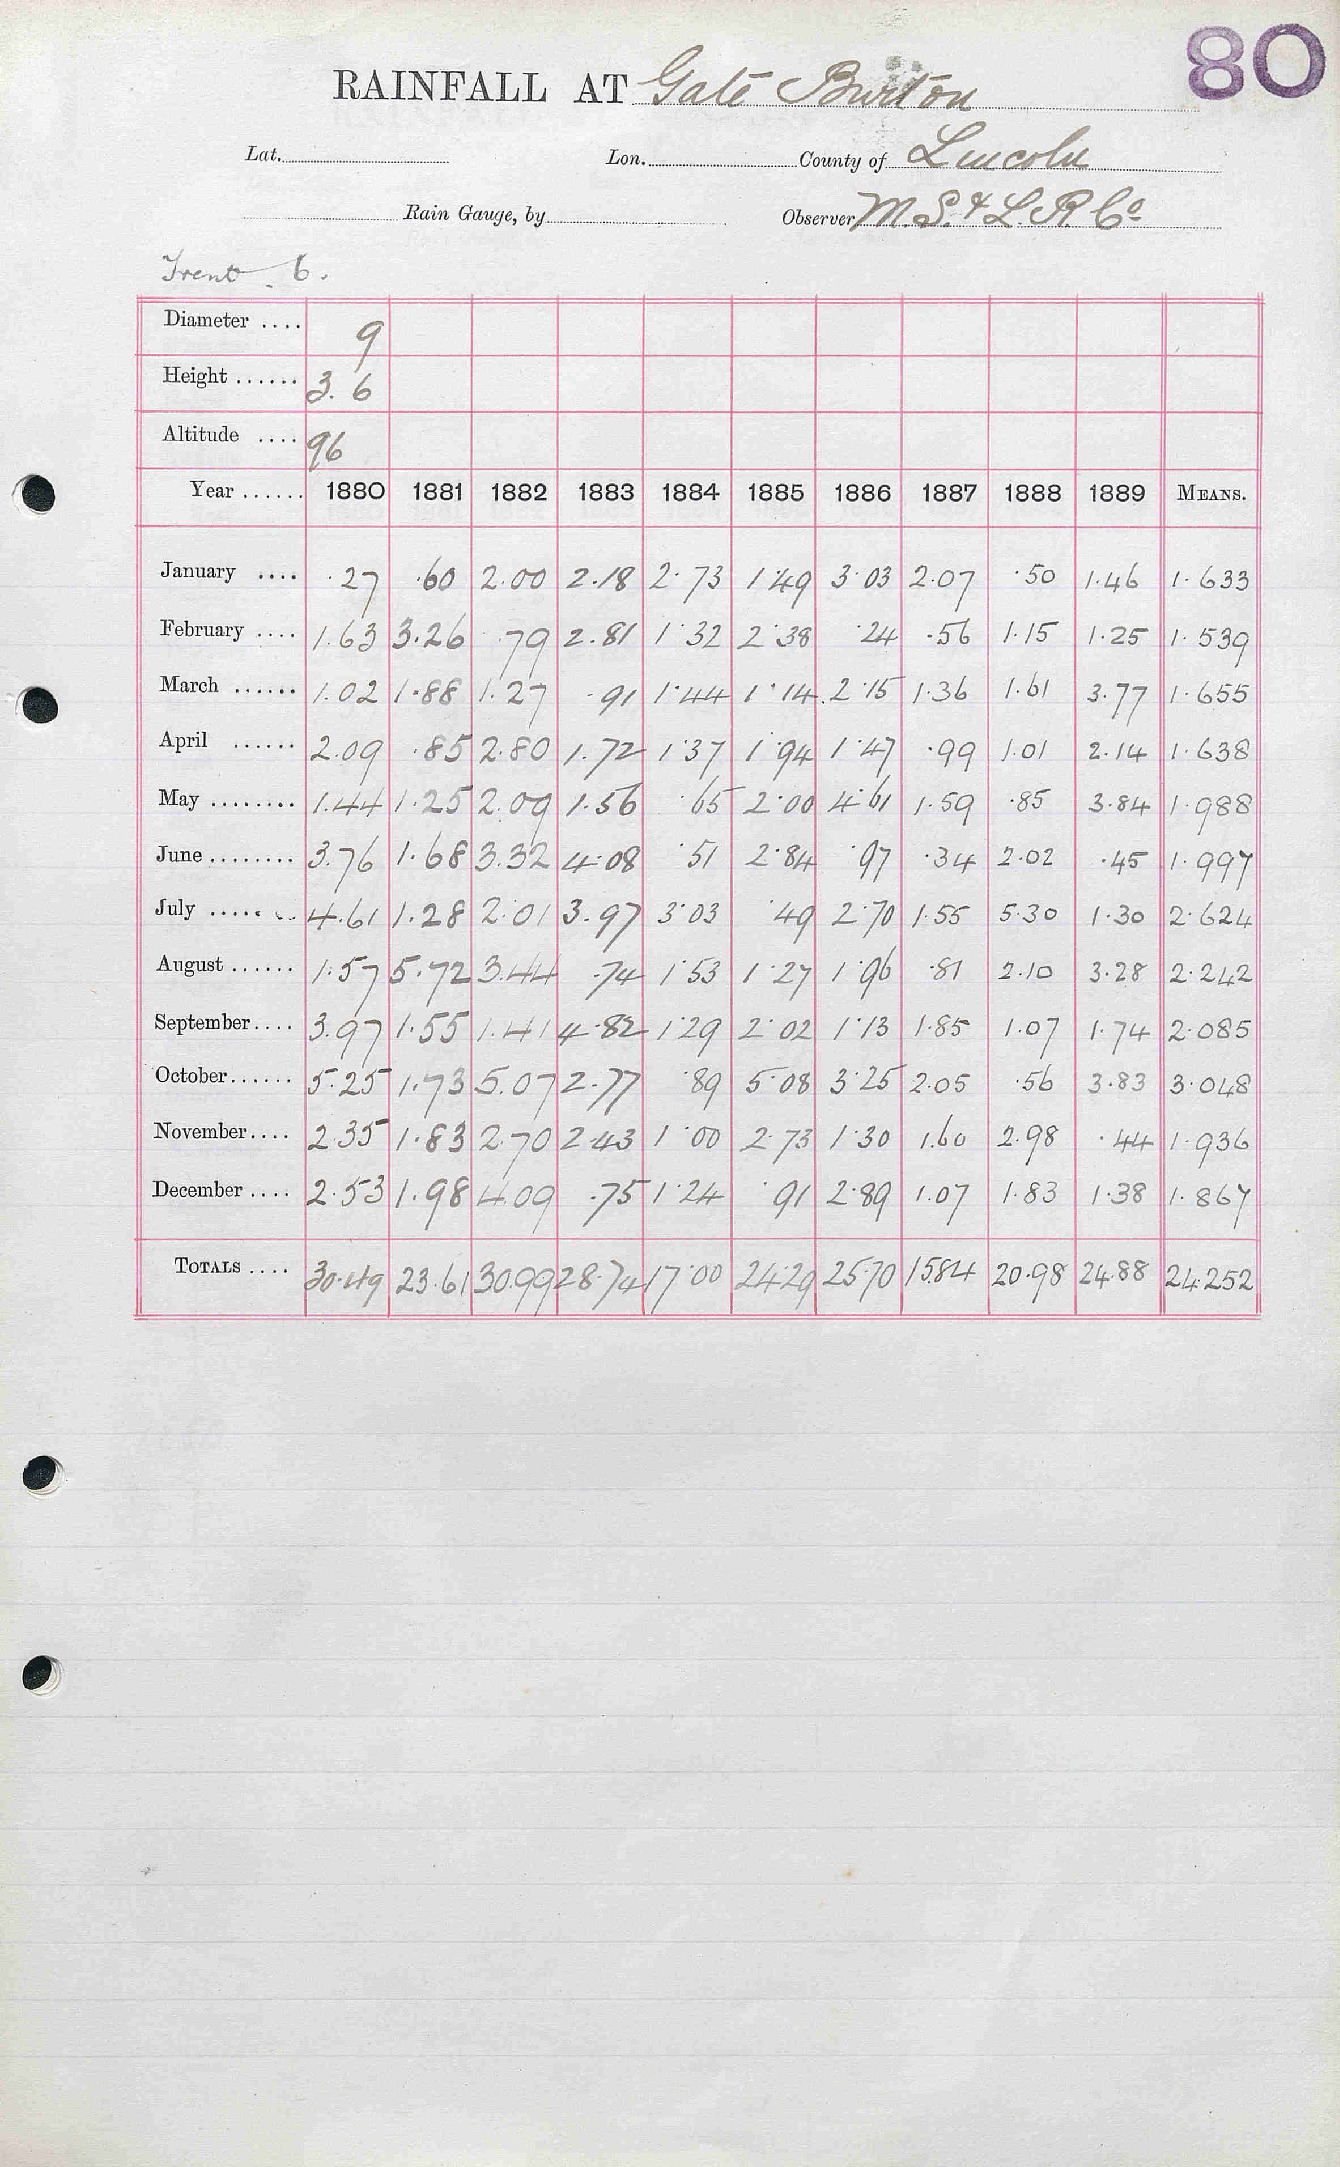 80
RAINFALL AT Gate Burton
Lat. Lon. County of Lincoln
Rain Gauge, by Observer M. S. & L. R. Co
Trent 6.
Diameter .... 9
Height ...... 3. 6
Altitude .... 96
Year ...... 1880 1881 1882 1883 1884 1885 1886 1887 1888 1889 MEANS.
January .... .27 .60 2.00 2.18 2.73 1.49 3.03 2.07 .50 1.46 1.633
February .... 1.63 3.26 .79 2.81 1.32 2.38 .24 .56 1.15 1.25 1.539
March ...... 1.02 1.88 1.27 .91 1.44 1.14 2.15 1.36 1.61 3.77 1.655
April ...... 2.09 .85 2.80 1.72 1.37 1.94 1.47 .99 1.01 2.14 1.638
May ........ 1.44 1.25 2.09 1.56 .65 2.00 4.61 1.59 .85 3.84 1.988
June ........ 3.76 1.68 3.32 4.08 .51 2.84 .97 .34 2.02 .45 1.997
July ........ 4.61 1.28 2.01 3.97 3.03 .49 2.70 1.55 5.30 1.30 2.624
August ...... 1.57 5.72 3.44 .74 1.53 1.27 1.96 .81 2.10 3.28 2.242
September .... 3.97 1.55 1.41 4.82 1.29 2.02 1.13 1.85 1.07 1.74 2.085
October ...... 5.25 1.73 5.07 2.77 .89 5.08 3.25 2.05 .56 3.83 3.048
November .... 2.35 1.83 2.70 2.43 1.00 2.73 1.30 1.60 2.98 .44 1.936
December .... 2.53 1.98 4.09 .75 1.24 .91 2.89 1.07 1.83 1.38 1.867
TOTALS .... 30.49 23.61 30.99 28.74 17.00 24.29 25.70 15.84 20.98 24.88 24.252